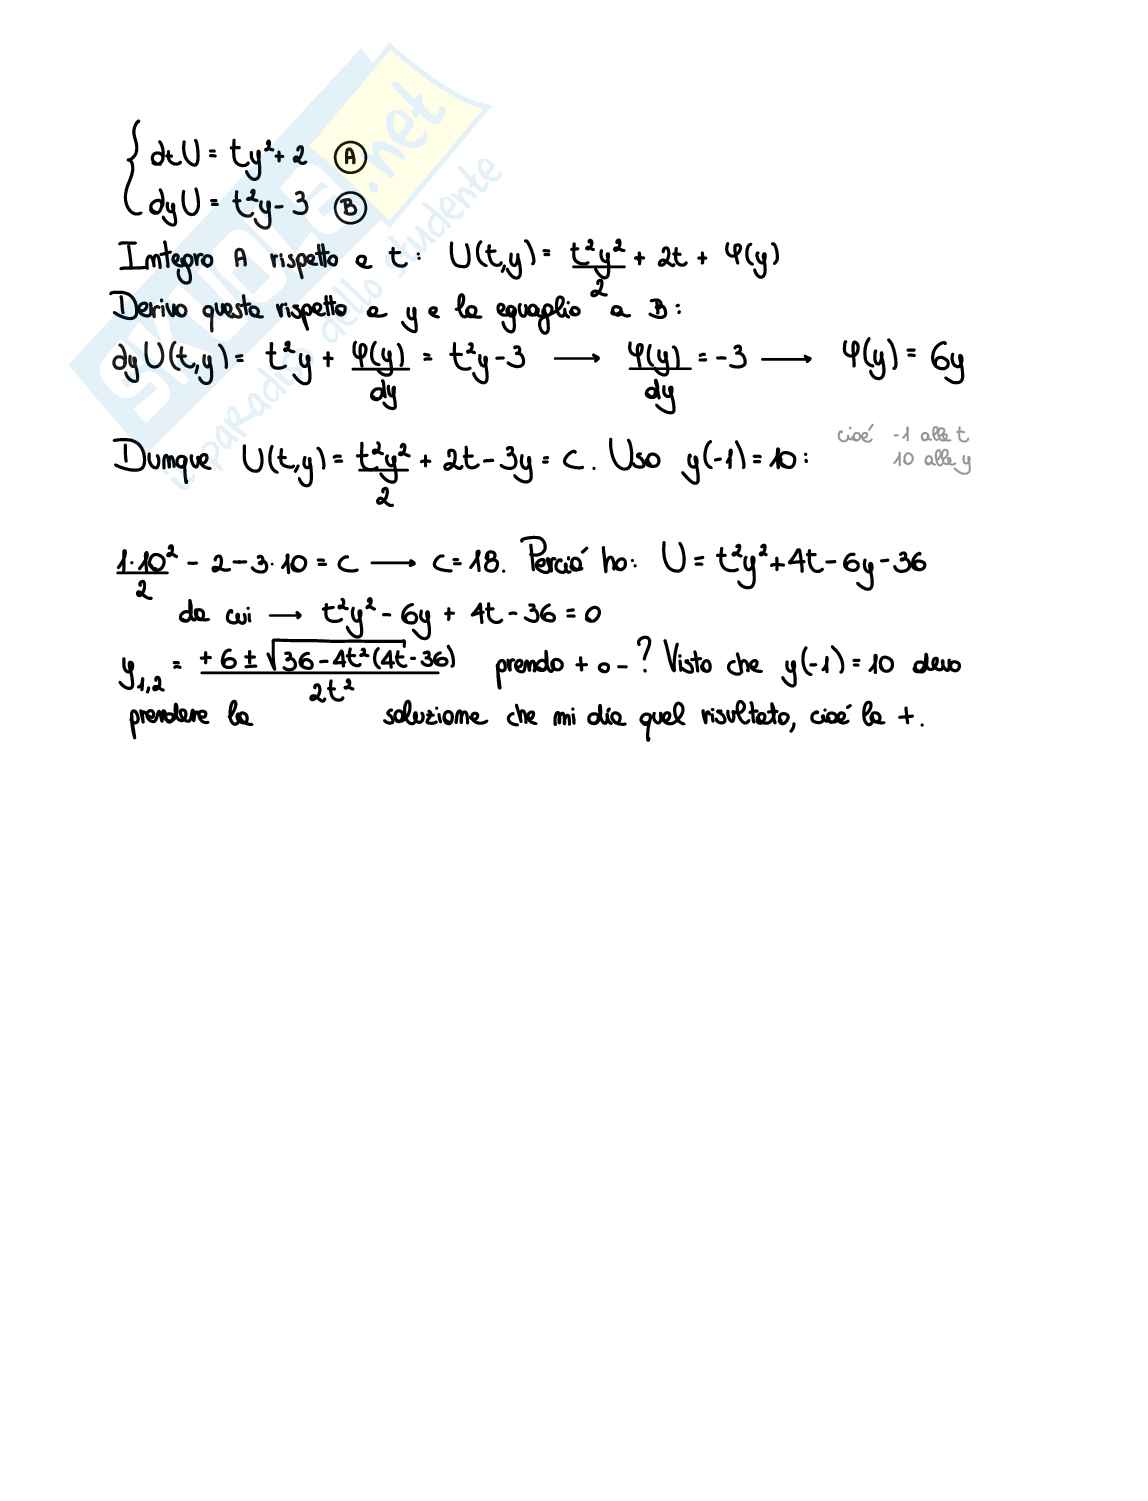 { dtU = ty²+ 2 Ⓐ
dyU = t²y - 3 Ⓑ
Integro A rispetto a t: U(t,y) = t²y²/2 + 2t + φ(y)
Derivo questa rispetto a y e la eguaglio a B:
dyU(t,y) = t²y + φ(y)/dy = t²y - 3 → φ(y)/dy = -3 → φ(y) = 6y
cioé -1 alla t
10 alla y
Dunque U(t,y) = t²y²/2 + 2t - 3y = c. Uso y(-1) = 10:
1·10²/2 - 2 - 3·10 = c → c = 18. Perció ho: U = t²y²+4t - 6y - 36
da cui → t²y² - 6y + 4t - 36 = 0
y1,2 = +6 ± √36 - 4t²(4t-36)/2t² prendo + o - ? Visto che y(-1) = 10 devo
prendere la soluzione che mi dia quel risultato, cioé la +.
SKUOLA.net
il paradiso dello studente